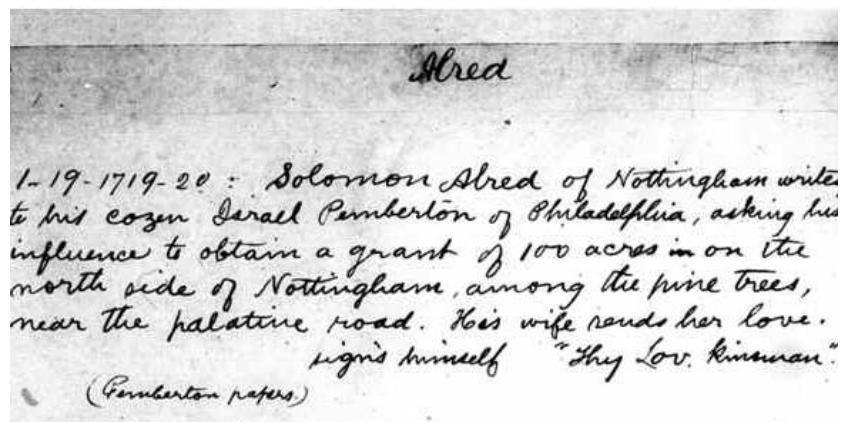 Alred
1-19-1719-20 : Solomon Alred of Nottingham writes
to his cozen Israel Pemberton of Philadelphia, asking his
influence to obtain a grant of 100 acres in on the
north side of Nottingham, among the pine trees,
near the palatine road. His wife sends her love.
signs himself "Thy Lov. Kinsman".
(Pemberton papers.)